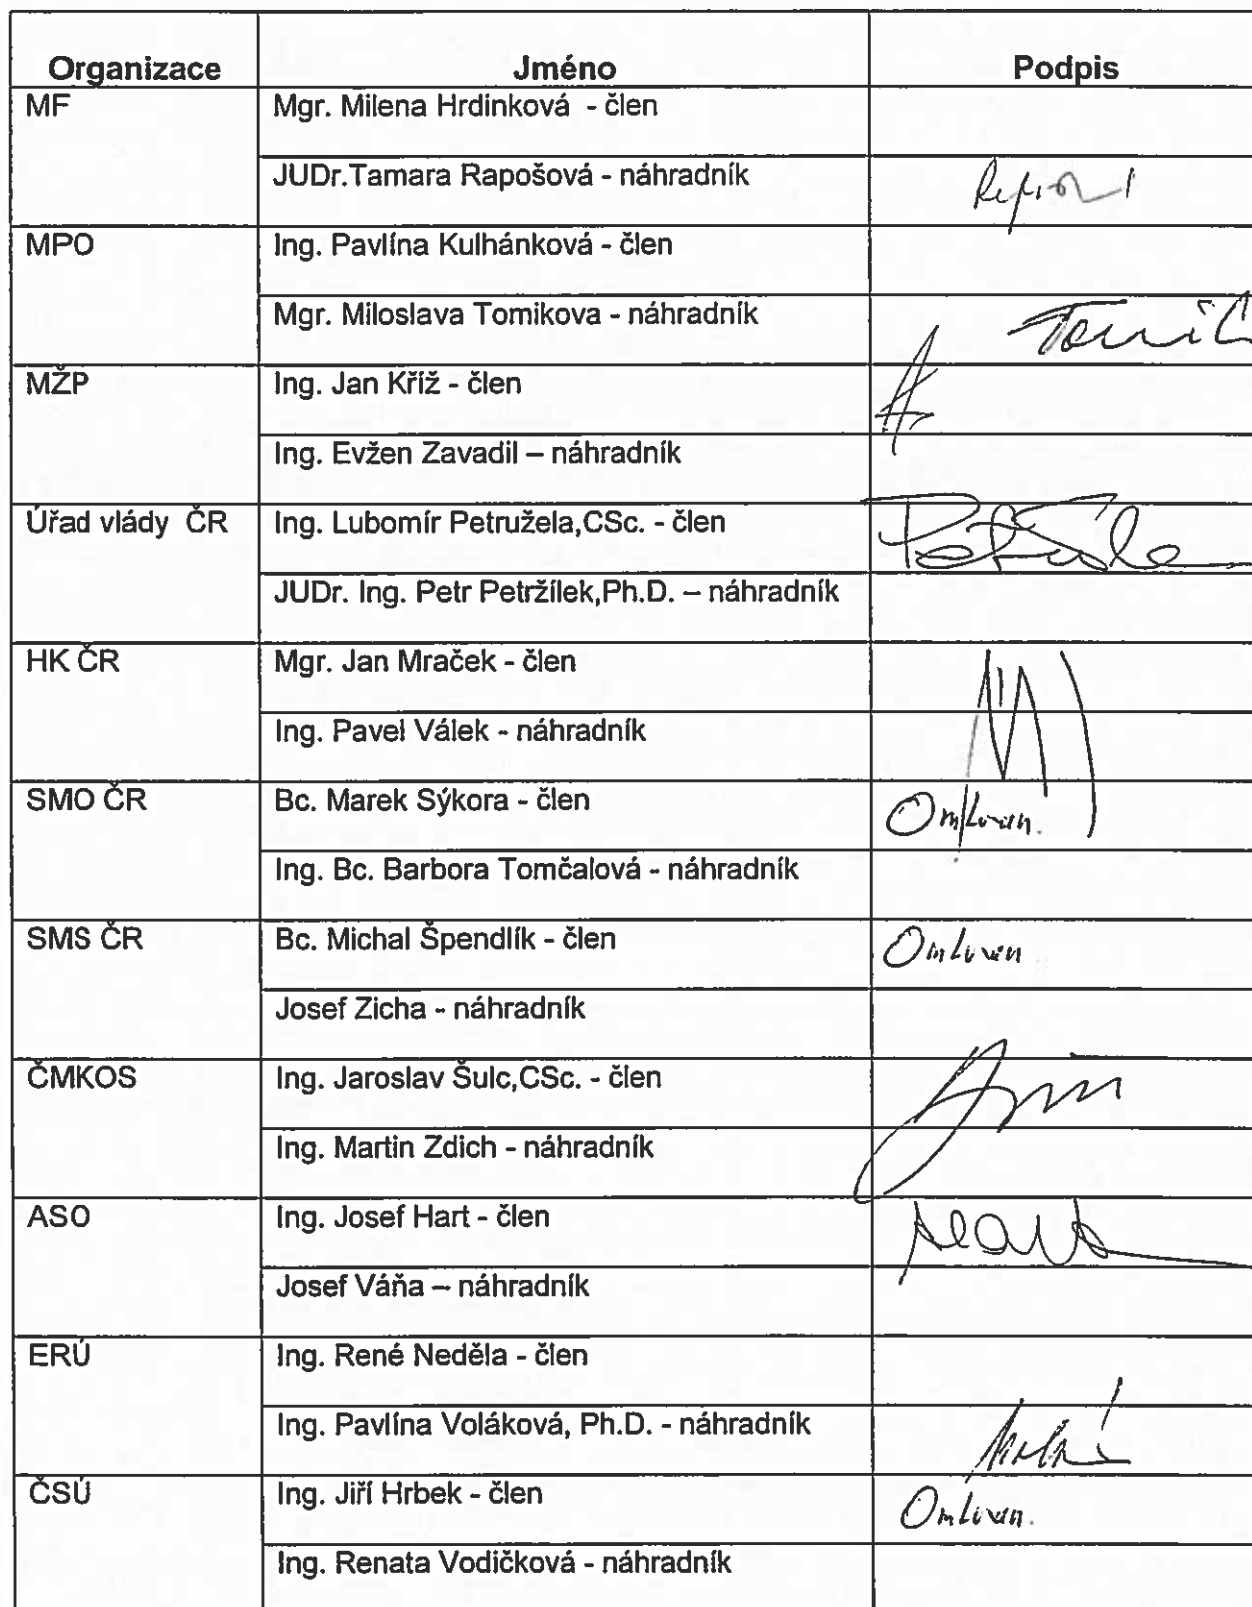 Organizace Jméno Podpis
MF Mgr. Milena Hrdinková - člen
JUDr.Tamara Rapošová - náhradník
MPO Ing. Pavlína Kulhánková - člen
Mgr. Miloslava Tomikova - náhradník
MŽP Ing. Jan Kříž - člen
Ing. Evžen Zavadil – náhradník
Úřad vlády ČR Ing. Lubomír Petružela,CSc. - člen
JUDr. Ing. Petr Petržílek,Ph.D. – náhradník
HK ČR Mgr. Jan Mraček - člen
Ing. Pavel Válek - náhradník
SMO ČR Bc. Marek Sýkora - člen Omluven.
Ing. Bc. Barbora Tomčalová - náhradník
SMS ČR Bc. Michal Špendlík - člen Omluven
Josef Zicha - náhradník
ČMKOS Ing. Jaroslav Šulc,CSc. - člen
Ing. Martin Zdich - náhradník
ASO Ing. Josef Hart - člen
Josef Váňa – náhradník
ERÚ Ing. René Neděla - člen
Ing. Pavlína Voláková, Ph.D. - náhradník
ČSÚ Ing. Jiří Hrbek - člen Omluven.
Ing. Renata Vodičková - náhradník